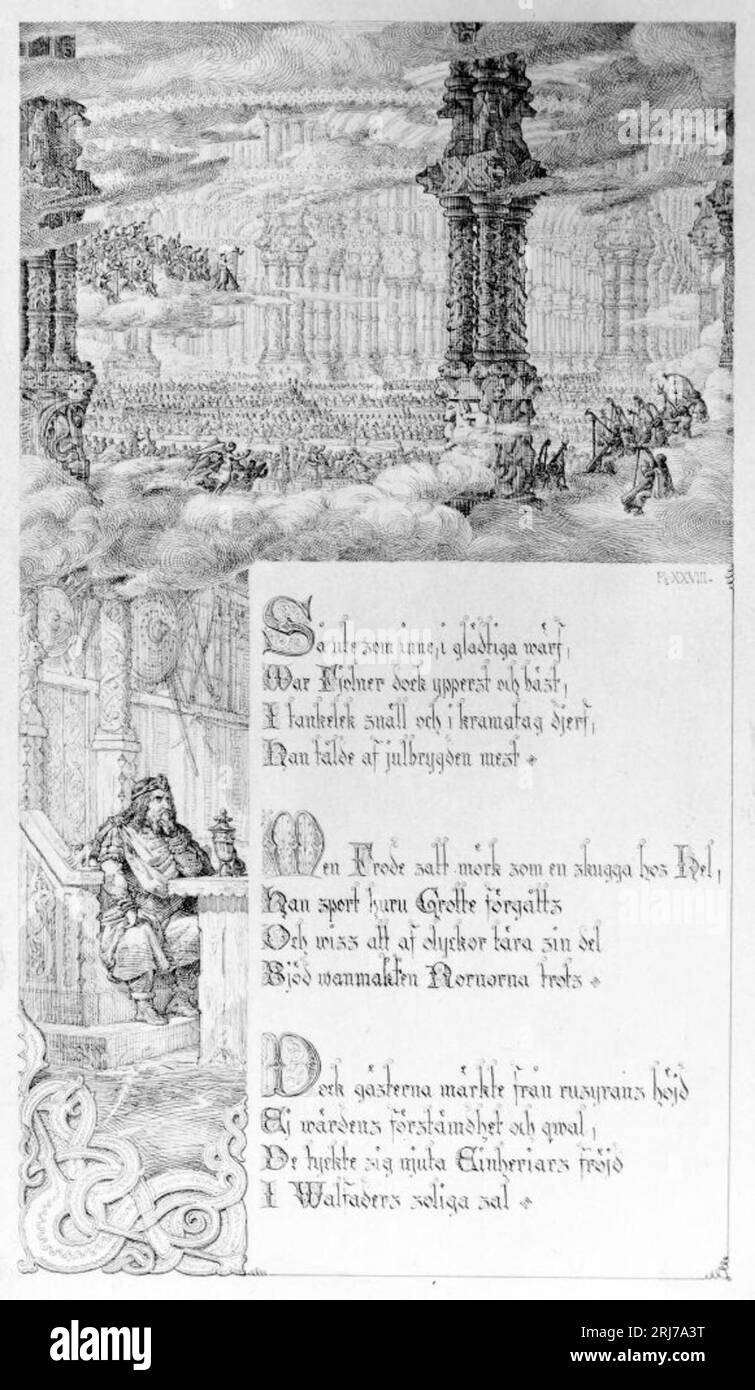 alamy
Pl. XXVIII.
Så ute som inne, i glädtiga wärf,
War Fjolner dock ypperst och bäst,
I tankelek snäll och i kramatag djerf,
Han tålde af julbrygden mest
Men Frode satt mörk som en skugga hos Hel,
Han sport huru Grotte förgåtts
Och wiss att af olyckor tära sin del
Bjöd wanmakten Nornorna trots
Dock gästerna märkte från rusyrans höjd
Ej wärdens förstämdhet och qwal,
De tyckte sig njuta Einheriars fröjd
I Walfaders soliga sal
alamy
Image ID: 2RJ7A3T
www.alamy.com